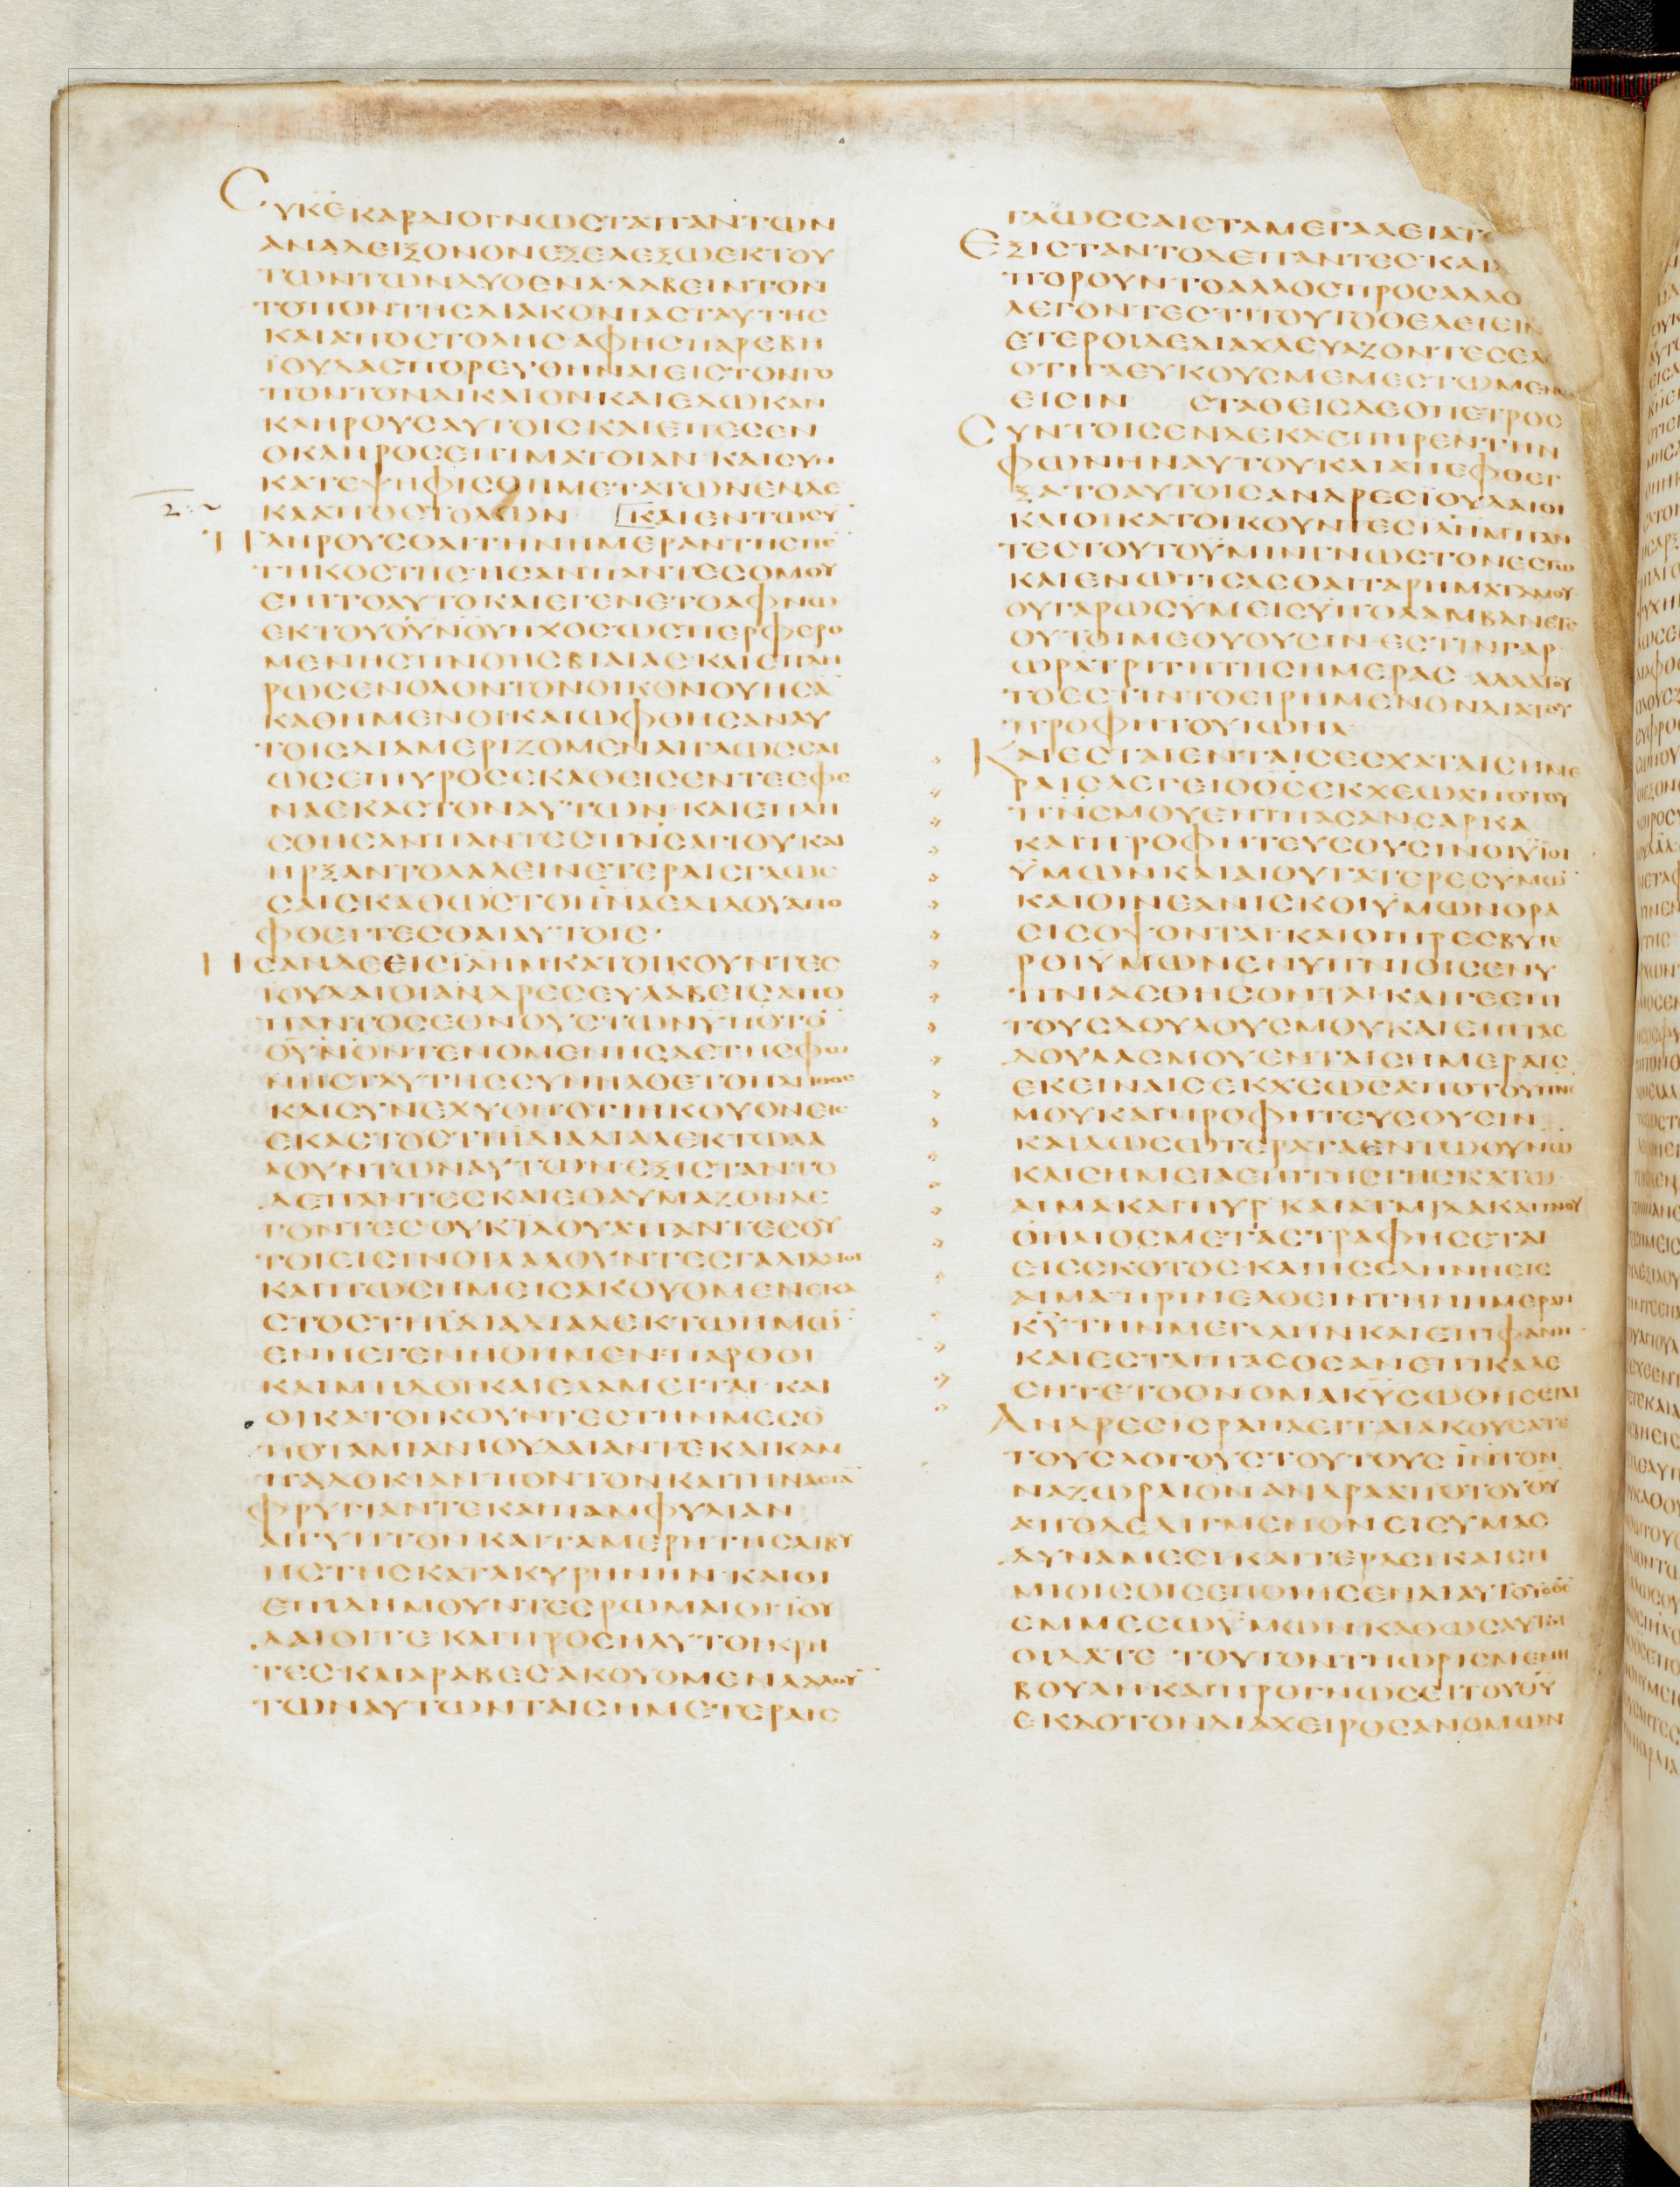 ΣΥΚ̅Ε̅ΚΑΡΔΙΟΓΝΩΣΤΑΠΑΝΤΩΝ
ΑΝΑΔΕΙΞΟΝΟΝΕΞΕΛΕΞΩΕΚΤΟΥ
ΤΩΝΤΩΝΔΥΟΕΝΑ·ΛΑΒΕΙΝΤΟΝ
ΤΟΠΟΝΤΗΣΔΙΑΚΟΝΙΑΣΤΑΥΤΗΣ
ΚΑΙΑΠΟΣΤΟΛΗΣ·ΑΦΗΣΠΑΡΕΒΗ
ΪΟΥΔΑΣΠΟΡΕΥΘΗΝΑΙΕΙΣΤΟΝΤΟ
ΠΟΝΤΟΝΔΙΚΑΙΟΝ·ΚΑΙΕΔΩΚΑΝ
ΚΛΗΡΟΥΣΑΥΤΟΙΣΚΑΙΕΠΕΣΕΝ
ΟΚΛΗΡΟΣΕΠΙΜΑΤΘΙΑΝ·ΚΑΙΣΥΝ
ΚΑΤΕΨΗΦΙΣΘΗΜΕΤΑΤΩΝΕΝΔΕ
ΚΑΑΠΟΣΤΟΛΩΝ ΚΑΙΕΝΤΩΣΥ
ΠΛΗΡΟΥΣΘΑΙΤΗΝΗΜΕΡΑΝΤΗΣΠΕ̅
ΤΗΚΟΣΤΗΣ·ΗΣΑΝΠΑΝΤΕΣΟΜΟΥ
ΕΠΙΤΟΑΥΤΟΚΑΙΕΓΕΝΕΤΟΑΦΝΩ
ΕΚΤΟΥΟΥ̅Ν̅ΟΥ̅ΗΧΟΣΩΣΠΕΡΦΕΡΟ
ΜΕΝΗΣΠΝΟΗΣΒΙΑΙΑΣ·ΚΑΙΕΠΛΗ
ΡΩΣΕΝΟΛΟΝΤΟΝΟΙΚΟΝΟΥΗΣΑ̅
ΚΑΘΗΜΕΝΟΙ·ΚΑΙΩΦΘΗΣΑΝΑΥ
ΤΟΙΣΔΙΑΜΕΡΙΖΟΜΕΝΑΙΓΛΩΣΣΑΙ
ΩΣΕΙΠΥΡΟΣ·ΕΚΑΘΕΙΣΕΝΤΕΕΦΕ
ΝΑΕΚΑΣΤΟΝΑΥΤΩΝ·ΚΑΙΕΠΛΗ
ΣΘΗΣΑΝΠΑΝΤΕΣΠ̅Ν̅Σ̅ΑΓΙΟΥΚΑΙ
ΗΡΞΑΝΤΟΛΑΛΕΙΝΕΤΕΡΑΙΣΓΛΩΣ
ΣΑΙΣΚΑΘΩΣΤΟΠ̅Ν̅Α̅ΕΔΙΔΟΥΑΠΟ
ΦΘΕΓΓΕΣΘΑΙΑΥΤΟΙΣ·
ΗΣΑΝΔΕΕΙΣΙ̅Λ̅Η̅Μ̅ΚΑΤΟΙΚΟΥΝΤΕΣ
ΪΟΥΔΑΙΟΙΑΝΔΡΕΣΕΥΛΑΒΕΙΣΑΠΟ
ΠΑΝΤΟΣΕΘΝΟΥΣΤΩΝΥΠΟΤΟ̅
ΟΥ̅Ν̅Ο̅Ν̅ΓΕΝΟΜΕΝΗΣΔΕΤΗΣΦΩ
ΝΗΣΤΑΥΤΗΣΣΥΝΗΛΘΕΤΟΠΛΗΘΟΣ
ΚΑΙΣΥΝΕΧΥΘΗΟΤΙΗΚΟΥΟΝΕΙΣ
ΕΚΑΣΤΟΣΤΗΪΔΙΑΔΙΑΛΕΚΤΩΛΑ
ΛΟΥΝΤΩΝΑΥΤΩΝ·ΕΞΙΣΤΑΝΤΟ
ΔΕΠΑΝΤΕΣΚΑΙΕΘΑΥΜΑΖΟΝΛΕ
ΓΟΝΤΕΣΟΥΚΙΔΟΥΑΠΑΝΤΕΣΟΥ
ΤΟΙΕΙΣΙΝΟΙΛΑΛΟΥΝΤΕΣΓΑΛΙΛΑΙΟΙ
ΚΑΙΠΩΣΗΜΕΙΣΑΚΟΥΟΜΕΝΕΚΑ
ΣΤΟΣΤΗΪΔΙΑΔΙΑΛΕΚΤΩΗΜΩ̅
ΕΝΗΕΓΕΝΗΘΗΜΕΝ·ΠΑΡΘΟΙ
ΚΑΙΜΗΔΟΙΚΑΙΕΛΑΜΕΙΤΑΙ·ΚΑΙ
ΟΙΚΑΤΟΙΚΟΥΝΤΕΣΤΗΝΜΕΣΟ
ΠΟΤΑΜΙΑΝΙΟΥΔΑΙΑΝΤΕΚΑΙΚΑΠ
ΠΑΔΟΚΙΑΝ·ΠΟΝΤΟΝΚΑΙΤΗΝΑΣΙΑ̅
ΦΡΥΓΙΑΝΤΕΚΑΙΠΑΜΦΥΛΙΑΝ
ΑΙΓΥΠΤΟΝΚΑΙΤΑΜΕΡΗΤΗΣΛΙΒΥ
ΗΣΤΗΣΚΑΤΑΚΥΡΗΝΗΝ·ΚΑΙΟΙ
ΕΠΙΔΗΜΟΥΝΤΕΣΡΩΜΑΙΟΙΪΟΥ
ΔΑΙΟΙΤΕΚΑΙΠΡΟΣΗΛΥΤΟΙΚΡΗ
ΤΕΣ·ΚΑΙΑΡΑΒΕΣΑΚΟΥΟΜΕΝΛΑΛΟΥ̅
ΤΩΝΑΥΤΩΝΤΑΙΣΗΜΕΤΕΡΑΙΣ
ΓΛΩΣΣΑΙΣΤΑΜΕΓΑΛΕΙΑΤ
ΕΞΙΣΤΑΝΤΟΔΕΠΑΝΤΕΣ·ΚΑΙ
ΠΟΡΟΥΝΤΟΑΛΛΟΣΠΡΟΣΑΛΛΟ
ΛΕΓΟΝΤΕΣΤΙΤΟΥΤΟΘΕΛΕΙΕΙΝ
ΕΤΕΡΟΙΔΕΔΙΑΧΛΕΥΑΖΟΝΤΕΣΕΛ
ΟΤΙΓΛΕΥΚΟΥΣΜΕΜΕΣΤΩΜΕΝΟΙ
ΕΙΣΙΝ ΣΤΑΘΕΙΣΔΕΟΠΕΤΡΟΣ
ΣΥΝΤΟΙΣΕΝΔΕΚΑΕΠΗΡΕΝΤΗΝ
ΦΩΝΗΝΑΥΤΟΥΚΑΙΑΠΕΦΘΕΓ
ΞΑΤΟΑΥΤΟΙΣΑΝΔΡΕΣΪΟΥΔΑΙΟΙ
ΚΑΙΟΙΚΑΤΟΙΚΟΥΝΤΕΣΙ̅Λ̅Η̅Μ̅ΠΑΝ
ΤΕΣΤΟΥΤΟΫΜΙΝΓΝΩΣΤΟΝΕΣΤΩ
ΚΑΙΕΝΩΤΙΣΑΣΘΑΙΤΑΡΗΜΑΤΑΜΟΥ
ΟΥΓΑΡΩΣΫΜΕΙΣΫΠΟΛΑΜΒΑΝΕΤΕ
ΟΥΤΟΙΜΕΘΥΟΥΣΙΝ·ΕΣΤΙΝΓΑΡ
ΩΡΑΤΡΙΤΗΤΗΣΗΜΕΡΑΣ·ΑΛΛΑΤΟΥ
ΤΟΕΣΤΙΝΤΟΕΙΡΗΜΕΝΟΝΔΙΑΤΟΥ
ΠΡΟΦΗΤΟΥΙΩΗΛ·
ΚΑΙΕΣΤΑΙΕΝΤΑΙΣΕΣΧΑΤΑΙΣΗΜΕ
ΡΑΙΣΛΕΓΕΙΟΘ̅Σ̅ΕΚΧΕΩΑΠΟΤΟΥ
Π̅Ν̅Σ̅ΜΟΥΕΠΙΠΑΣΑΝΣΑΡΚΑ
ΚΑΙΠΡΟΦΗΤΕΥΣΟΥΣΙΝΟΙΥΪΟΙ
ΫΜΩΝΚΑΙΑΙΘΥΓΑΤΕΡΕΣΥΜΩ̅
ΚΑΙΟΙΝΕΑΝΙΣΚΟΙΫΜΩΝΟΡΑ
ΣΙΣΟΨΟΝΤΑΙ·ΚΑΙΟΙΠΡΕΣΒΥΤΕ
ΡΟΙΫΜΩΝΕΝΥΠΝΙΟΙΣΕΝΥ
ΠΝΙΑΣΘΗΣΟΝΤΑΙ·ΚΑΙΓΕΕΠΙ
ΤΟΥΣΔΟΥΛΟΥΣΜΟΥΚΑΙΕΠΙΤΑΣ
ΔΟΥΛΑΣΜΟΥΕΝΤΑΙΣΗΜΕΡΑΙΣ
ΕΚΕΙΝΑΙΣΕΚΧΕΩΑΠΟΤΟΥΠ̅Ν̅Σ̅
ΜΟΥΚΑΙΠΡΟΦΗΤΕΥΣΟΥΣΙΝ
ΚΑΙΔΩΣΩΤΕΡΑΤΑΕΝΤΩΟΥΝΩ
ΚΑΙΣΗΜΕΙΑΕΠΙΤΗΣΓΗΣΚΑΤΩ·
ΑΙΜΑΚΑΙΠΥΡ·ΚΑΙΑΤΜΙΔΑΚΑΠΝΟΥ
ΟΗΛΙΟΣΜΕΤΑΣΤΡΑΦΗΣΕΤΑΙ
ΕΙΣΣΚΟΤΟΣ·ΚΑΙΗΣΕΛΗΝΗΕΙΣ
ΑΙΜΑ·ΠΡΙΝΕΛΘΕΙΝΤΗΝΗΜΕΡΑΝ
Κ̅Υ̅ΤΗΝΜΕΓΑΛΗΝΚΑΙΕΠΙΦΑΝΗ·
ΚΑΙΕΣΤΑΙΠΑΣΟΣΑΝΕΠΙΚΑΛΕ
ΣΗΤΕΤΟΟΝΟΜΑΚ̅Υ̅ΣΩΘΗΣΕΤΑΙ
ΑΝΔΡΕΣΙΣΡΑΗΛΕΙΤΑΙΑΚΟΥΣΑΤΕ
ΤΟΥΣΛΟΓΟΥΣΤΟΥΤΟΥΣΙ̅Ν̅ΤΟΝ
ΝΑΖΩΡΑΙΟΝΑΝΔΡΑΑΠΟΤΟΥΘ̅Υ̅
ΑΠΟΔΕΔΙΓΜΕΝΟΝΕΙΣΥΜΑΣ
ΔΥΝΑΜΕΣΙ·ΚΑΙΤΕΡΑΣΙ·ΚΑΙΣΗ
ΜΙΟΙΣΟΙΣΕΠΟΙΗΣΕΝΔΙΑΥΤΟΥΟΘ̅Σ̅
ΕΜΜΕΣΩΫΜΩΝΚΑΘΩΣΑΥΤΟΙ
ΟΙΔΑΤΕ·ΤΟΥΤΟΝΤΗΩΡΙΣΜΕΝΗ
ΒΟΥΛΗΚΑΙΠΡΟΓΝΩΣΕΙΤΟΥΘ̅Υ̅
ΕΚΔΟΤΟΝΔΙΑΧΕΙΡΟΣΑΝΟΜΩΝ